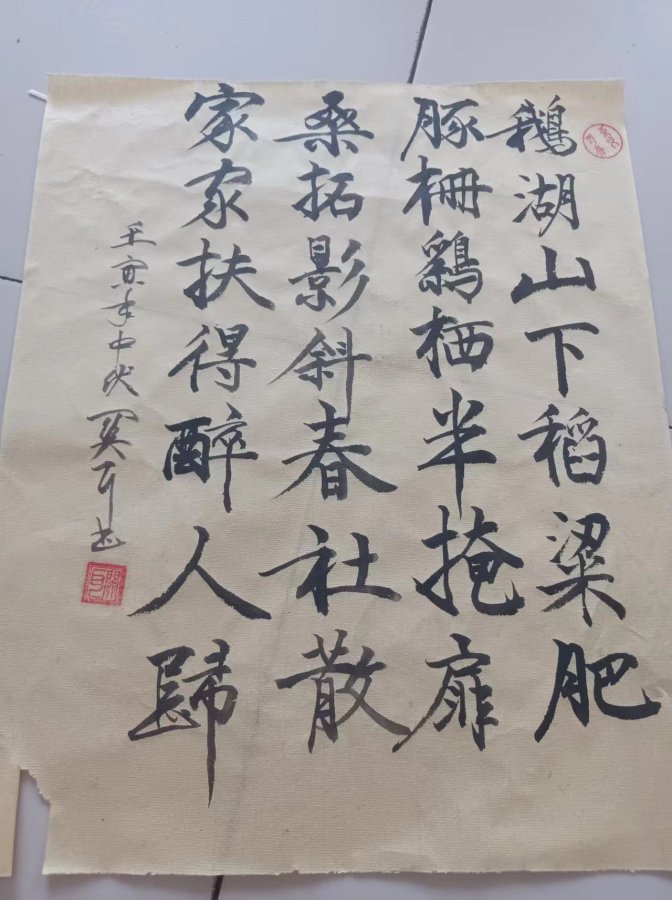 鵝湖山下稻粱肥
豚柵鷄栖半掩扉
桑拓影斜春社散
家家扶得醉人歸
壬寅年中伏